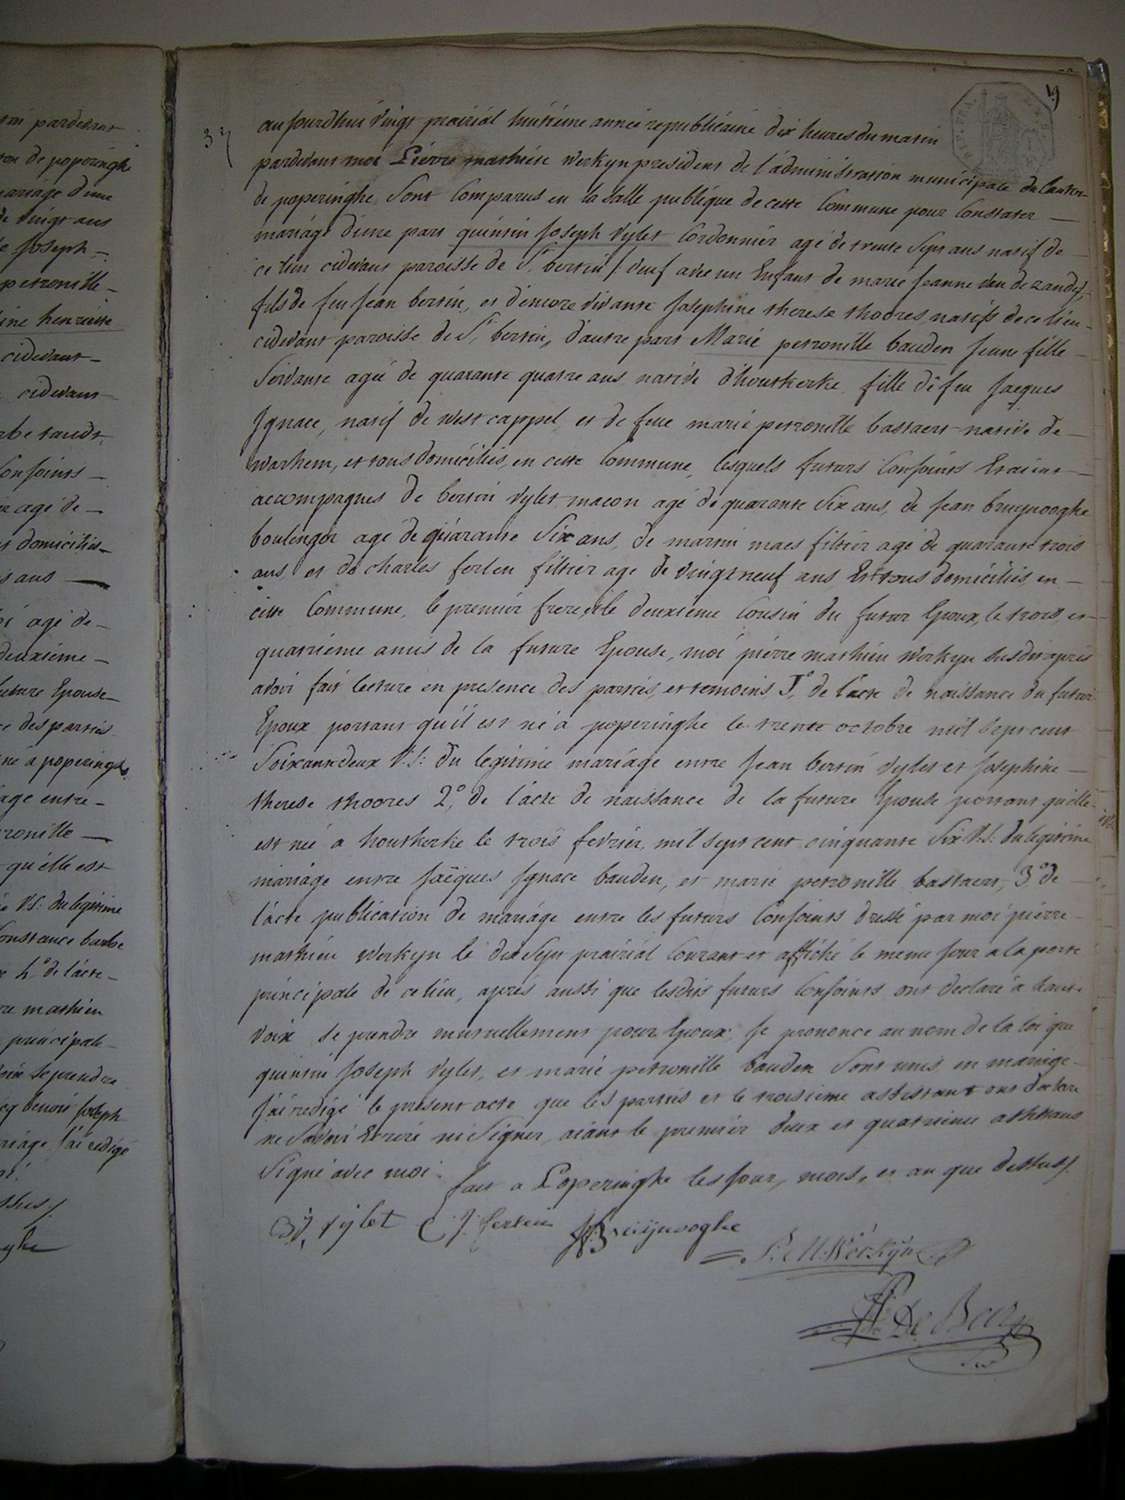 ton de poperingh
mariage d'une
de vingt ans
Joseph
petronille
henriette
cidevant
cidevant
Conjoints
agé de
domiciliés
ans
agé de
deuxieme
future Epouse
des parties
né a poperinghe
entre
qu'elle est
V.S: du legitime
Constance
4° de l'acte
mathieu
principale
se prendre
Joseph
j'ai redigé
19
37
aujourdhui vingt prairial huitieme année republicaine dix heures du matin
pardevant moi Pierre mathieu werkyn president de l'administration municipale du Canton
de poperinghe, Sont Comparus en la Salle publique de cette Commune pour Constater
mariage d'une part quintin Joseph Vylet Cordonnier agé de trente Sept ans natif de
ce lieu cidevant paroisse de St bertin / veuf avec un Enfant de marie Jeanne van de zande /
fils de feu Jean bertin, et d'encore vivante Josephine therese thoores natifs de ce lieu
cidevant paroisse de St bertin, d'autre part Marie petronille bauden Jeune fille
Servante agée de quarante quatre ans native d'houtkerke fille de feu Jacques
Ignace, natif de westcappel et de feue marie petronille bastaert native de
warhem, et tous domiciliés en cette Commune, lesquels futurs Conjoints Etaient
accompagnés de bertin Vylet macon agé de quarante Six ans, de Jean bruynooghe
boulenger agé de quarante Six ans, de martin maes filtier agé de quarante trois
ans et de charles ferlen filtier agé de vingt neuf ans Et tous domiciliés en
cette Commune, le premier frere, le deuxieme Cousin du futur Epoux, le trois et
quatrieme amis de la future Epouse, moi pierre mathieu werkyn susdit après
avoir fait lecture en presence des parties, et temoins 1° de l'acte de naissance du futur
Epoux portant qu'il est né à poperinghe le trente octobre mil Sept cent
Soixante deux V.S: du legitime mariage entre Jean bertin Vylet et Josephine
therese thoores 2° de l'acte de naissance de la future Epouse portant qu'elle
est née a houtkerke le trois fevrier mil sept cent cinquante Six V.S. du legitime
mariage entre Jacques Ignace bauden, et marie petronille bastaert, 3° de
l'acte publication de mariage entre les futurs Conjoints dressé par moi pierre
mathieu werkyn le dix Sept prairial Courant et affiché le meme jour a la porte
principale de ce lieu, après aussi que lesdits futurs Conjoints ont declaré à haute
voix se prendre mutuellement pour Epoux, Je prononce au nom de la loi que
quintin Joseph Vylet, et marie petronille bauden Sont unis en mariage
j'ai redigé le present acte que les parties et le troisieme assistant ont declaré
ne Savoir Ecrire ni Signer, aiant le premier deux et quatrieme assistans
Signé avec moi. fait a Poperinghe les jour, mois, et an que dessus /
Vylet C J ferlein JB Bruynooghe
P: M: Werkyn
De Beer